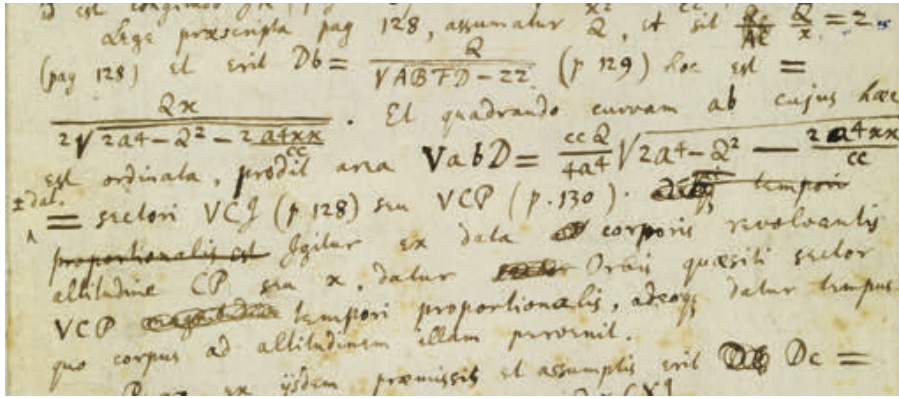 id est
Lege præscripta pag 128, assumatur x² Q, et sit Q x = z
(pag 128) et erit Db = Q / √ABFD − zz (p 129) hoc est =
Qx / 2√2a4 − Q² − 2a4xx/cc . Et quadrando curvam ab cujus hæc
est ordinata, prodit area VabD = ccQ/4a4 √2a4 − Q² — 2a4xx/cc
± dat.
= sectori VCI (p 128) seu VCP (p. 130). tempori
proportionalis est Igitur ex data corporis revolventis
altitudine CP seu x, datur Orbis quæsiti sector
VCP tempori proportionalis, adeoq; datur tempus
quo corpus ad altitudinem illam pervenit.
ex ijsdem præmissis et assumptis erit Dc =